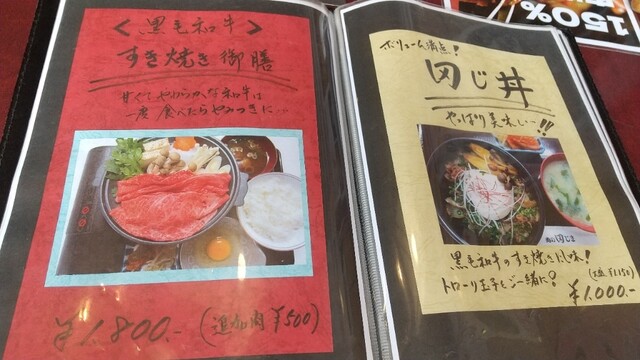 ＜黒毛和牛＞
すき焼き御膳
甘くてやわらかな和牛は
一度食べたらやみつきに…
¥1,800.- (追加肉 ¥500)
ボリューム満点!
田じ丼
やっぱり美味しい〜!!
黒毛和牛のすき焼き風味!
トローリ玉子とご一緒に?
¥1,000.-
150%